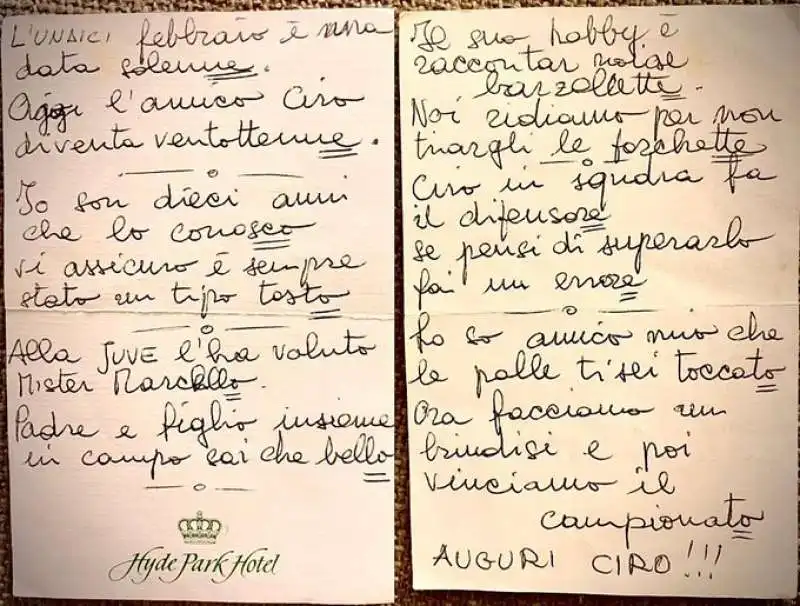 L'UNDICI febbraio è una
data solenne.
Oggi l'amico Ciro
diventa ventottenne.
Io son dieci anni
che lo conosco
vi assicuro è sempre
stato un tipo tosto
Alla JUVE l'ha voluto
Mister Marcello.
Padre e figlio insieme
in campo sai che bello
Hyde Park Hotel
Il suo hobby è
raccontar noise
barzellette.
Noi ridiamo per non
tirargli le forchette
Ciro in squdra fa
il difensore
se pensi di superarlo
fai un errore
Lo so amico mio che
le palle ti sei toccato
Ora facciamo un
brindisi e poi
vinciamo il
campionato
AUGURI CIRO!!!